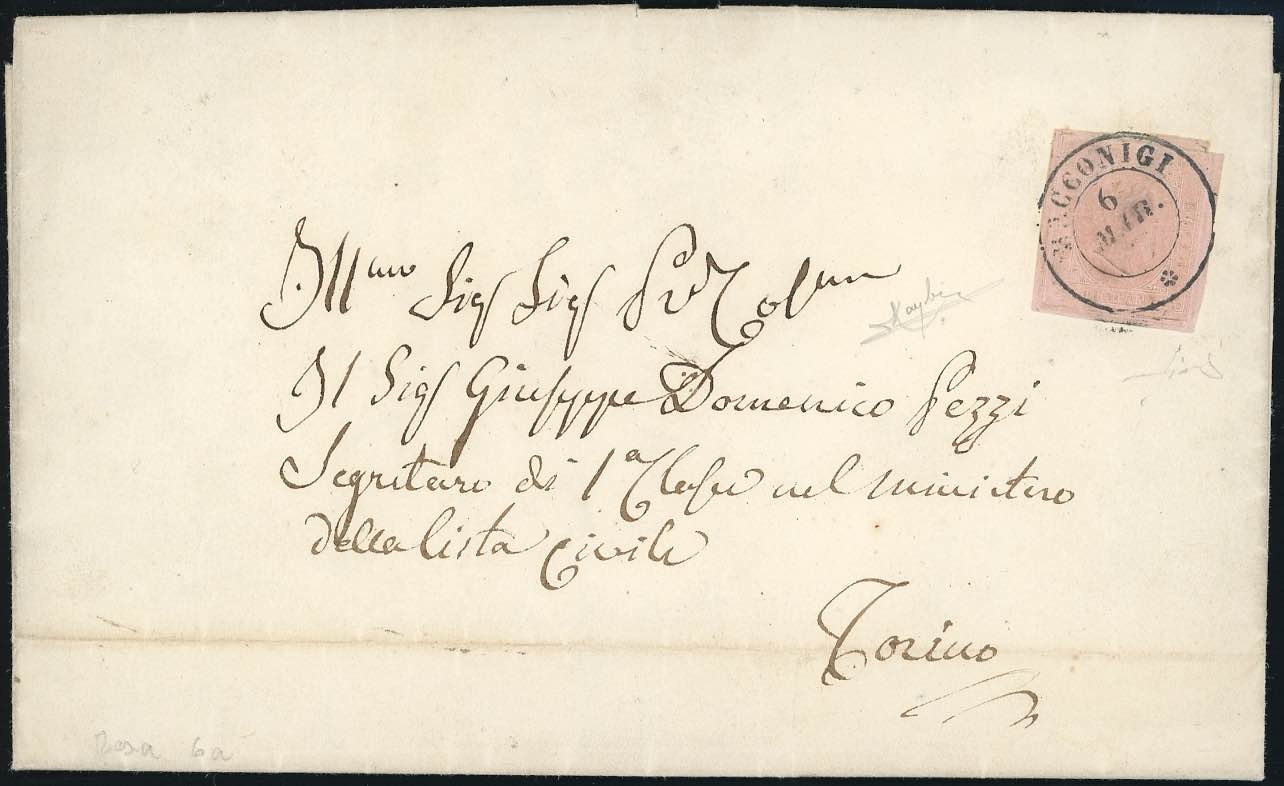 RACCONIGI
6
MAR.
Ill.mo Sig Sig P.
Il Sig Giuseppe Domenico Pezzi
Segretaro di 1a Classe nel ministero
della lista Civile
Torino
Rosa 6a